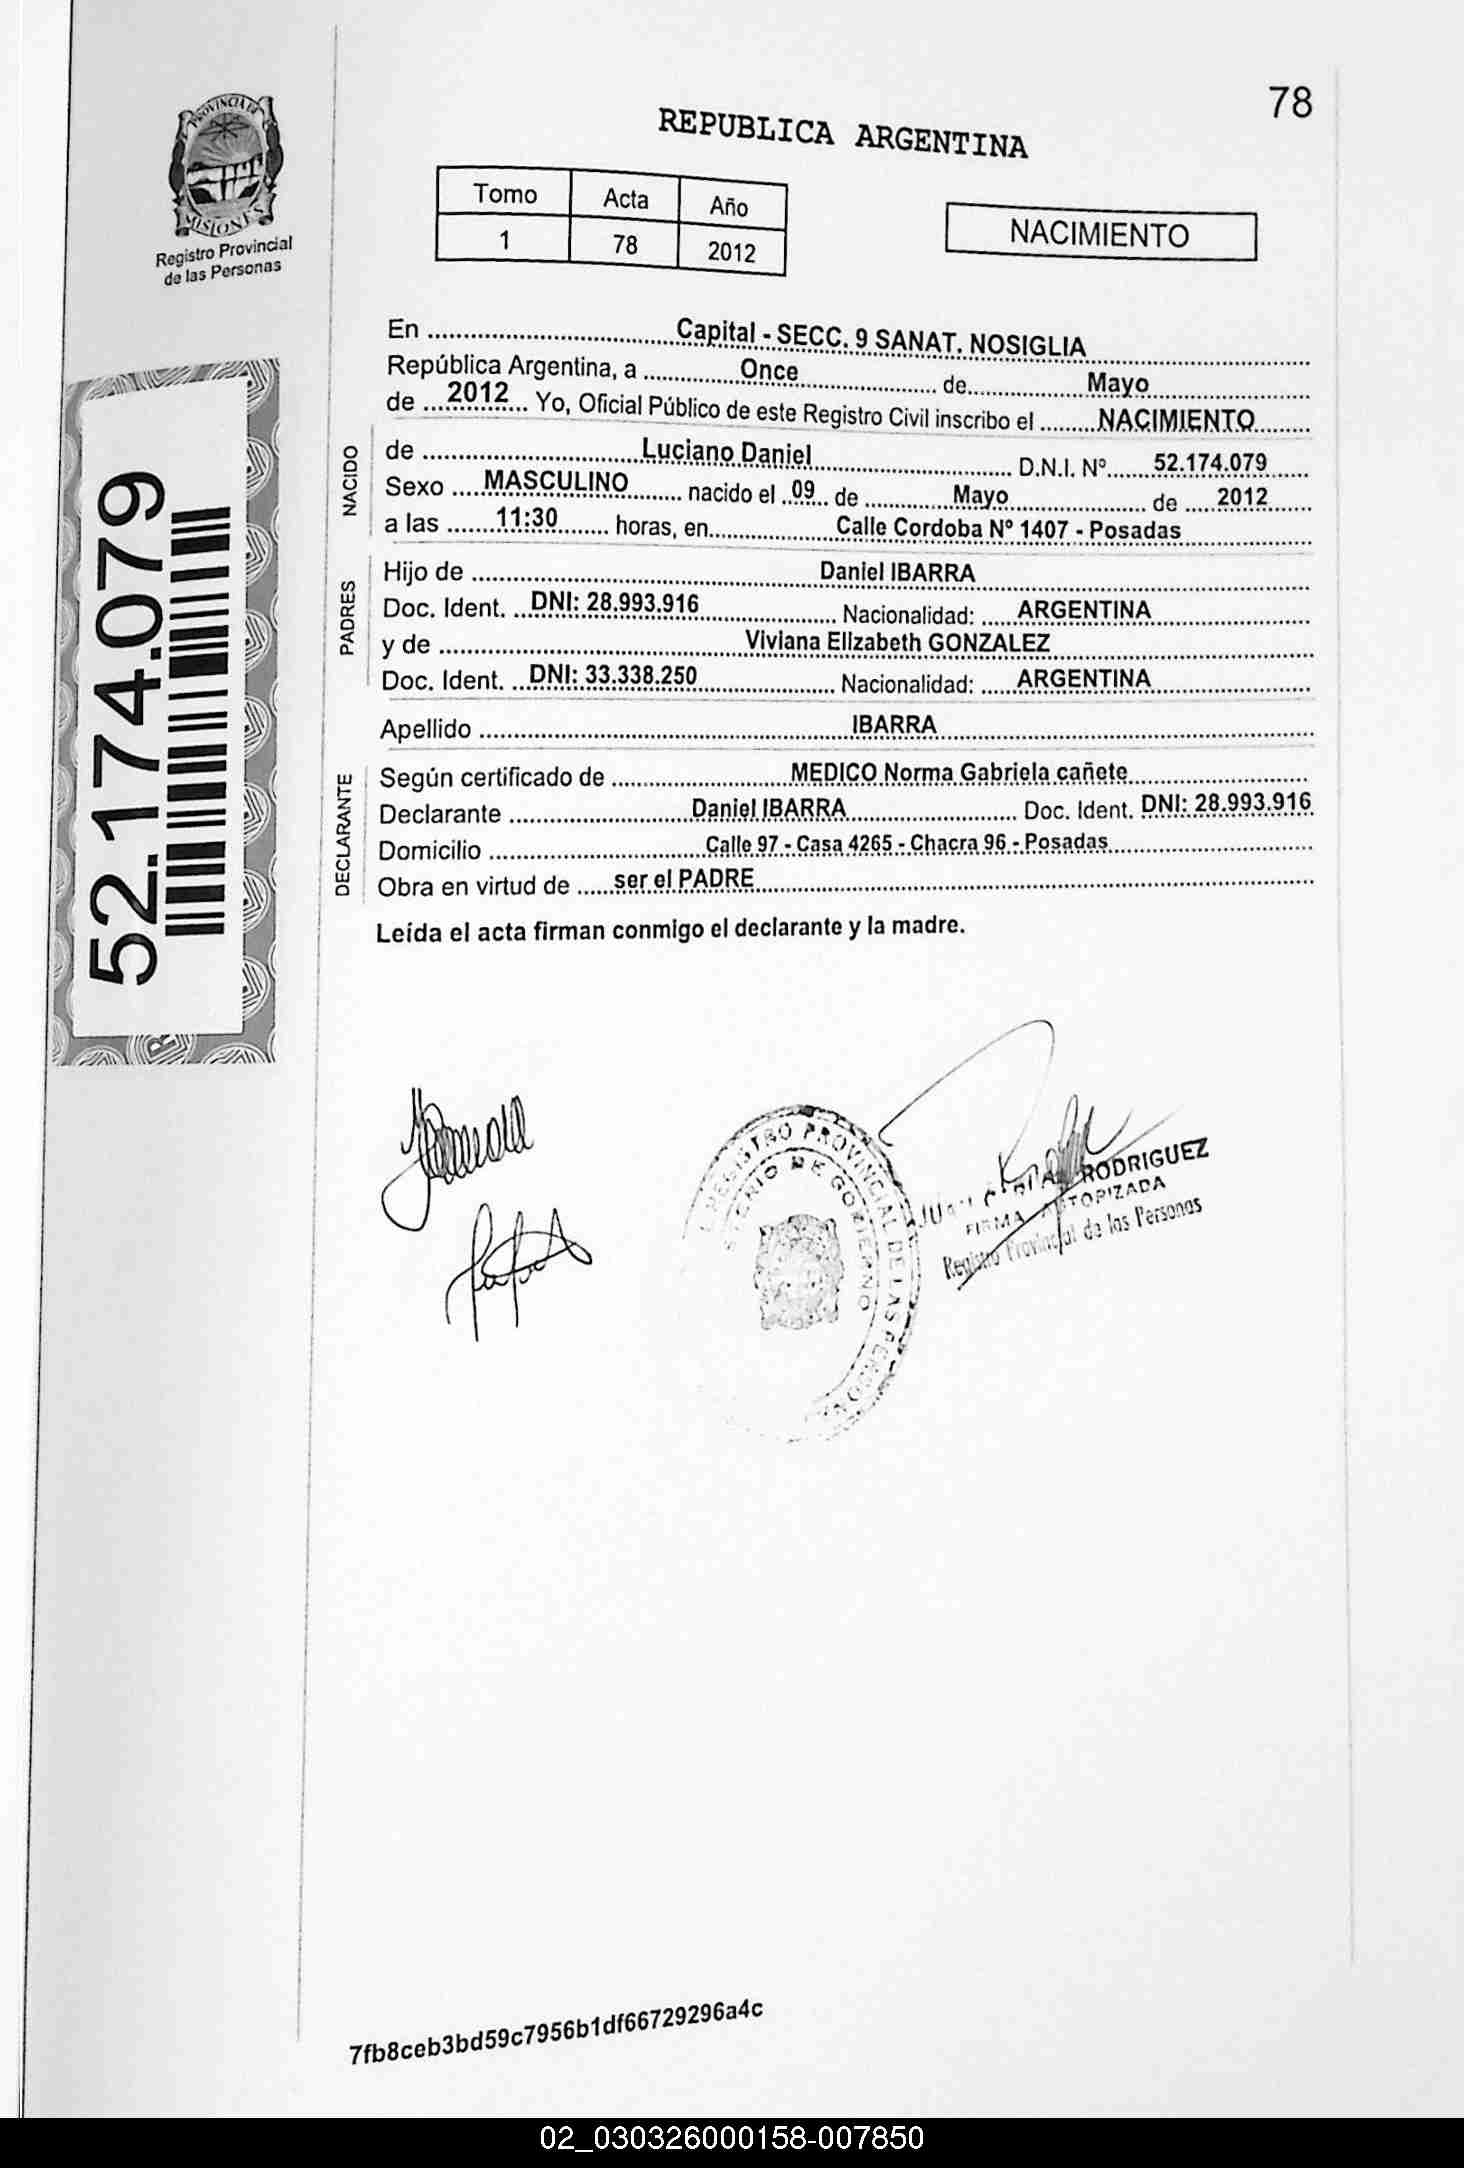 78
REPUBLICA ARGENTINA
PROVINCIA DE
MISIONES
Registro Provincial
de las Personas
Tomo Acta Año
1 78 2012
NACIMIENTO
En Capital - SECC. 9 SANAT. NOSIGLIA
República Argentina, a Once de Mayo
de 2012 Yo, Oficial Público de este Registro Civil inscribo el NACIMIENTO
NACIDO
de Luciano Daniel D.N.I. Nº 52.174.079
Sexo MASCULINO nacido el 09 de Mayo de 2012
a las 11:30 horas, en Calle Cordoba Nº 1407 - Posadas
PADRES
Hijo de Daniel IBARRA
Doc. Ident. DNI: 28.993.916 Nacionalidad: ARGENTINA
y de Viviana Elizabeth GONZALEZ
Doc. Ident. DNI: 33.338.250 Nacionalidad: ARGENTINA
Apellido IBARRA
DECLARANTE
Según certificado de MEDICO Norma Gabriela cañete
Declarante Daniel IBARRA Doc. Ident. DNI: 28.993.916
Domicilio Calle 97 - Casa 4265 - Chacra 96 - Posadas
Obra en virtud de ser el PADRE
Leída el acta firman conmigo el declarante y la madre.
52.174.079
REGISTRO PROVINCIAL DE LAS
DE GOBIERNO
RODRIGUEZ
FIRMA AUTORIZADA
Registro Provincial de las Personas
7fb8ceb3bd59c7956b1df66729296a4c
02_030326000158-007850